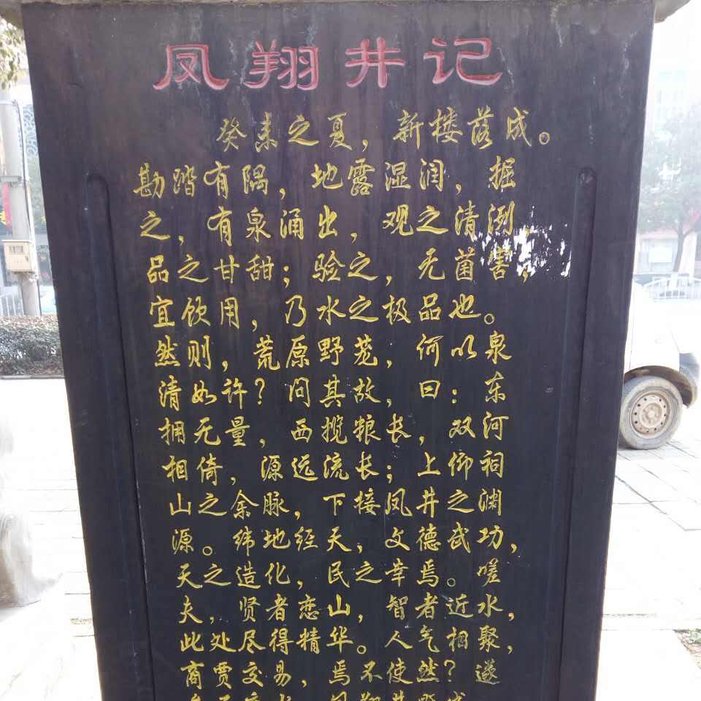 凤翔井记
癸未之夏，新楼落成。
勘踏有隅，地露湿润，掘
之，有泉涌出，观之清冽，
品之甘甜；验之，无菌害，
宜饮用，乃水之极品也。
然则，荒原野茏，何以泉
清如许？问其故，曰：东
拥无量，西揽粮长，双河
相倚，源远流长；上仰祠
山之余脉，下接凤井之渊
源。纬地经天，文德武功，
天之造化，民之幸焉。嗟
夫，贤者恋山，智者近水，
此处尽得精华。人气相聚，
商贾交易，焉不使然？遂